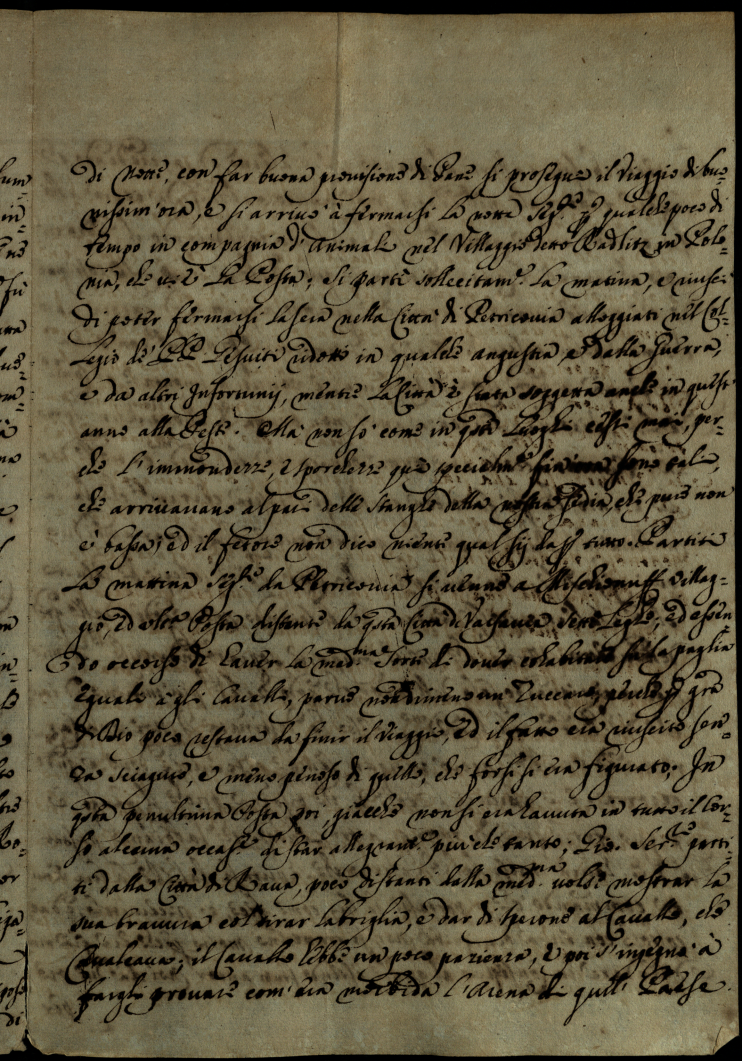 di notte, con far buona provisione di Pane si prosegue il viaggio di buo-
nissim'ora, e si arrivò à fermarsi la notte seg.te p qualche poco di
tempo in compagnia d'Animali nel Villaggio detto Radlitz in Polo-
nia, che v'è La Posta; Si partì sollecitam.e la matina, e riusc
di poter fermarsi la sera nella Città di Petricovia alloggiati nel Col-
legio de PP. Gesuiti ridotto in qualche angustia, e dalla Guerra,
e da altri Infortunij, mentre la Città è stata soggetta anche in quest'
anno alla Peste. Mà non sò come in q.ti Luoghi per-
che l'immondezze, e sporchezze sono tali,
che arrivavano al pari delle stanghe della nostra sedia, che pure non
è bassa; ed il fetore non dico niente qual sij tutto. Partiti
La mattina seg.te da Petricovia si venne a Villag-
gio, ed Posta distante da q.ta Città di Leghe; ed essen-
do occorso di haver la med.ma sorte di dover su la paglia
eguale à gli Cavalli, parve nondimeno un Zuccaro, p gra
di Dio poco restava da finir il viaggio, ed il fatto era riuscito sen-
za sciagure, e meno penoso di quello, che forsi si era figurato. In
q.ta penultima Posta poi, giacche non si era havuta in tutto il Cor-
so alcuna occas.e di star allegram.e più che tanto; Gio. parti-
ti dalla Città di Rava, poco distanti dalla med.ma volse mostrar la
sua bravura col tirar la briglia, e dar di sperone al Cavallo, che
Cavalcava; il Cavallo hebbe un poco pazienza, e poi s'ingegnò à
fargli provare com'era morbida l'Arena di quel Paese.